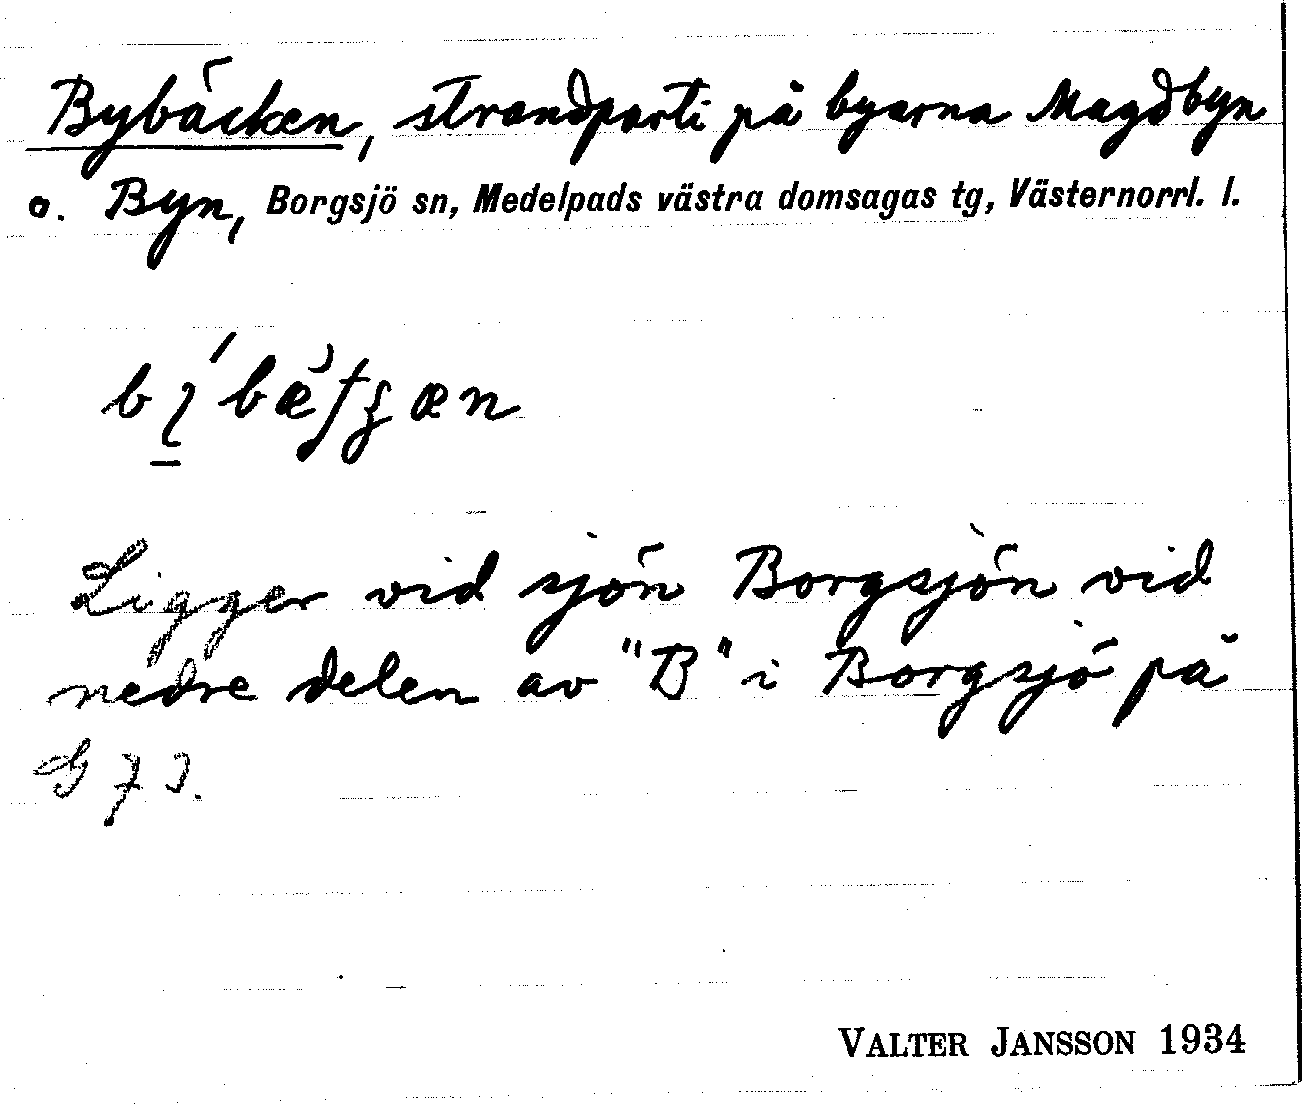 Bybäcken, strandparti på byarna Magdbyn
o. Byn, Borgsjö sn, Medelpads västra domsagas tg, Västernorrl. l.
Ligger vid sjön Borgsjön vid
nedre delen av "B" i Borgsjö på
G 7 J.
VALTER JANSSON 1934